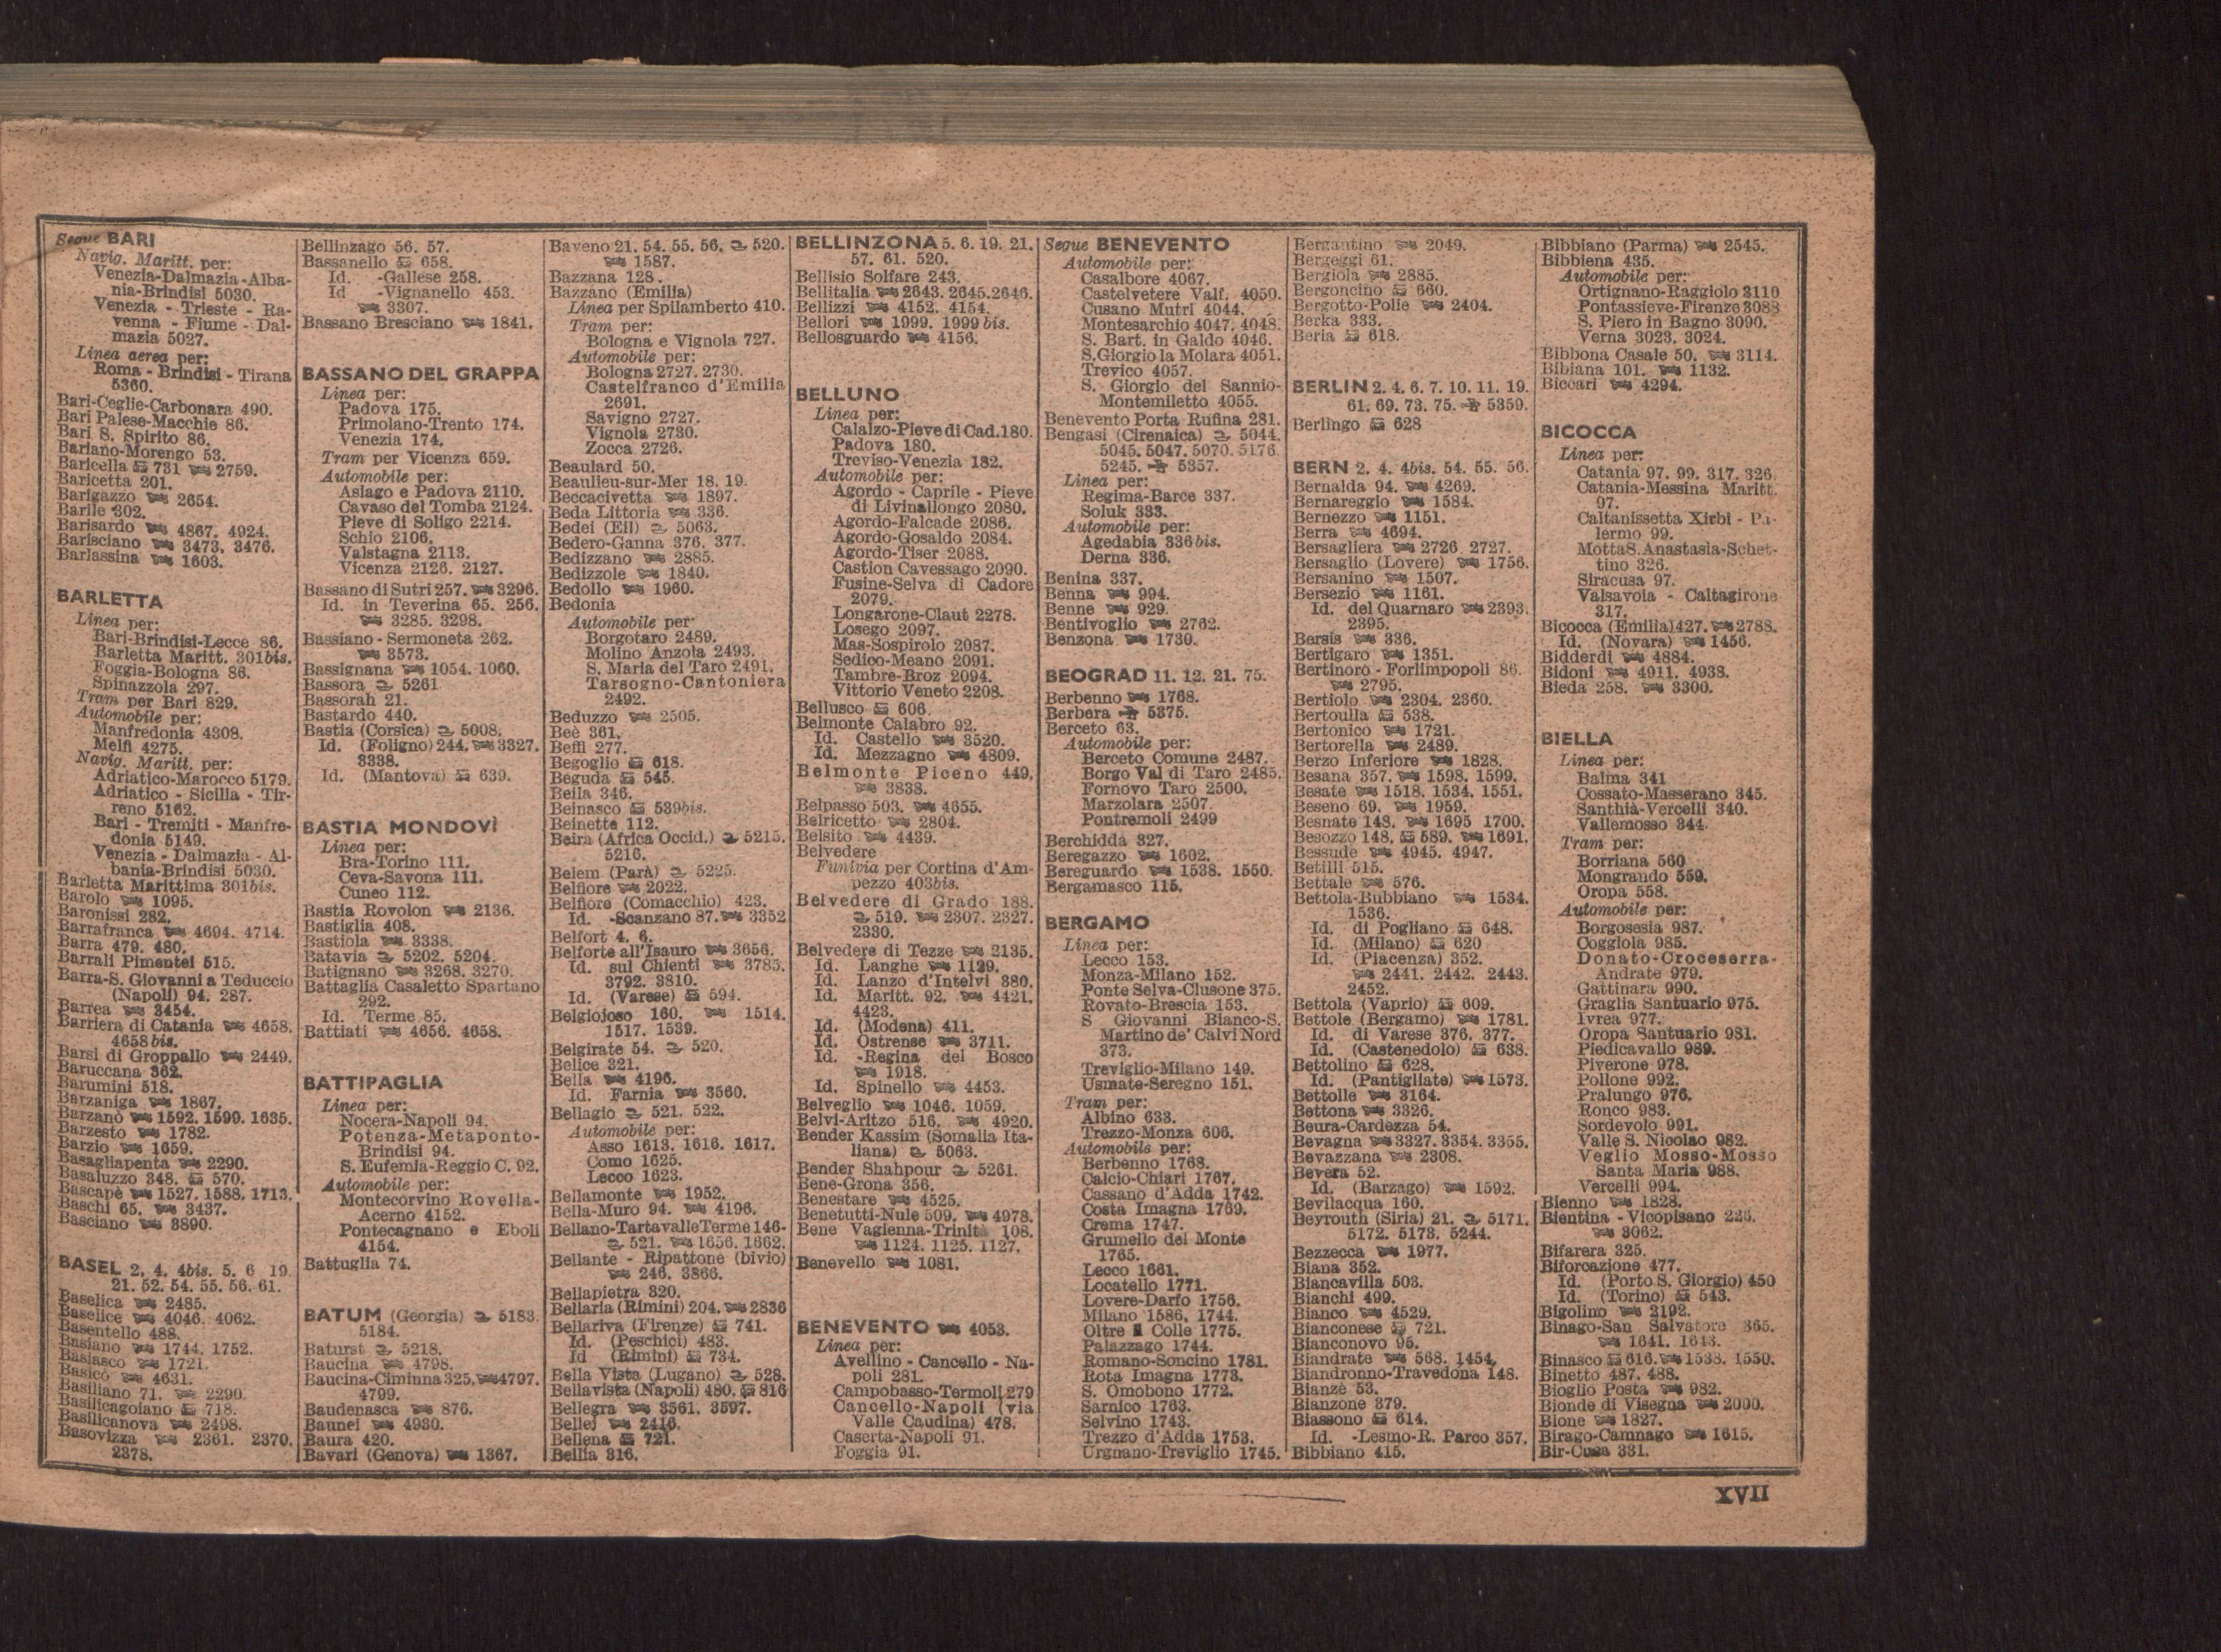 Segue BARI
Navig. Maritt. per:
Venezia-Dalmazia-Alba-
nia-Brindisi 5030.
Venezia - Trieste - Ra-
venna - Fiume - Dal-
mazia 5027.
Linea aerea per:
Roma - Brindisi - Tirana
5360.
Bari-Ceglie-Carbonara 490.
Bari Palese-Macchie 86.
Bari S. Spirito 86.
Bariano-Morengo 53.
Baricella 731 2759.
Baricetta 201.
Barigazzo 2654.
Barile 302.
Barisardo 4867. 4924.
Barisciano 3473. 3476.
Barlassina 1603.
BARLETTA
Linea per:
Bari-Brindisi-Lecce 86.
Barletta Maritt. 301bis.
Foggia-Bologna 86.
Spinazzola 297.
Tram per Bari 829.
Automobile per:
Manfredonia 4308.
Melfi 4275.
Navig. Maritt. per:
Adriatico-Marocco 5179.
Adriatico - Sicilia - Tir-
reno 5162.
Bari - Tremiti - Manfre-
donia 5149.
Venezia - Dalmazia - Al-
bania-Brindisi 5030.
Barletta Marittima 301bis.
Barolo 1095.
Baronissi 282.
Barrafranca 4694. 4714.
Barra 479. 480.
Barrali Pimentel 515.
Barra-S. Giovanni a Teduccio
(Napoli) 94. 287.
Barrea 3454.
Barriera di Catania 4658.
4658bis.
Barsi di Groppallo 2449.
Baruccana 362.
Barumini 518.
Barzaniga 1867.
Barzanò 1592. 1599. 1635.
Barzesto 1782.
Barzio 1659.
Basagliapenta 2290.
Basaluzzo 348. 570.
Bascapè 1527. 1588. 1713.
Baschi 65. 3437.
Basciano 3890.
BASEL 2. 4. 4bis. 5. 6 19.
21. 52. 54. 55. 56. 61.
Baselica 2485.
Baselice 4046. 4062.
Basentello 488.
Basiano 1744. 1752.
Basiasco 1721.
Basicò 4631.
Basiliano 71. 2290.
Basilicagoiano 718.
Basilicanova 2498.
Basovizza 2361. 2370.
2378.
Bellinzago 56. 57.
Bassanello 658.
Id. -Gallese 258.
Id -Vignanello 453.
3307.
Bassano Bresciano 1841.
BASSANO DEL GRAPPA
Linea per:
Padova 175.
Primolano-Trento 174.
Venezia 174.
Tram per Vicenza 659.
Automobile per:
Asiago e Padova 2110.
Cavaso del Tomba 2124.
Pieve di Soligo 2214.
Schio 2106.
Valstagna 2113.
Vicenza 2126. 2127.
Bassano di Sutri 257. 3296.
Id. in Teverina 65. 256.
3285. 3298.
Bassiano - Sermoneta 262.
3573.
Bassignana 1054. 1060.
Bassora 5261
Bassorah 21.
Bastardo 440.
Bastia (Corsica) 5008.
Id. (Foligno) 244. 3327.
3338.
Id. (Mantova) 639.
BASTIA MONDOVÌ
Linea per:
Bra-Torino 111.
Ceva-Savona 111.
Cuneo 112.
Bastia Rovolon 2136.
Bastiglia 408.
Bastiola 3338.
Batavia 5202. 5204.
Batignano 3268. 3270.
Battaglia Casaletto Spartano
292.
Id. Terme 85.
Battiati 4656. 4658.
BATTIPAGLIA
Linea per:
Nocera-Napoli 94.
Potenza-Metaponto-
Brindisi 94.
S. Eufemia-Reggio C. 92.
Automobile per:
Montecorvino Rovella-
Acerno 4152.
Pontecagnano e Eboli
4154.
Battuglia 74.
BATUM (Georgia) 5183.
5184.
Baturst 5218.
Baucina 4798.
Baucina-Ciminna 325. 4797.
4799.
Baudenasca 876.
Baunei 4930.
Baura 420.
Bavari (Genova) 1367.
Baveno 21. 54. 55. 56. 520.
1587.
Bazzana 128.
Bazzano (Emilia)
Linea per Spilamberto 410.
Tram per:
Bologna e Vignola 727.
Automobile per:
Bologna 2727. 2730.
Castelfranco d'Emilia
2691.
Savigno 2727.
Vignola 2730.
Zocca 2726.
Beaulard 50.
Beaulieu-sur-Mer 18. 19.
Beccacivetta 1897.
Beda Littoria 336.
Bedei (Eil) 5063.
Bedero-Ganna 376. 377.
Bedizzano 2885.
Bedizzole 1840.
Bedollo 1960.
Bedonia
Automobile per
Borgotaro 2489.
Molino Anzola 2493.
S. Maria del Taro 2491.
Tarsogno-Cantoniera
2492.
Beduzzo 2505.
Beè 361.
Beffi 277.
Begoglio 618.
Beguda 545.
Beila 346.
Beinasco 539bis.
Beinette 112.
Beira (Africa Occid.) 5215.
5216.
Belem (Parà) 5225.
Belfiore 2022.
Belfiore (Comacchio) 423.
Id. -Scanzano 87. 3352
Belfort 4. 6.
Belforte all'Isauro 3656.
Id. sul Chienti 3785.
3792. 3810.
Id. (Varese) 594.
Belgiojoso 160. 1514.
1517. 1539.
Belgirate 54. 520.
Belice 321.
Bella 4196.
Id. Farnia 3560.
Bellagio 521. 522.
Automobile per:
Asso 1613. 1616. 1617.
Como 1625.
Lecco 1623.
Bellamonte 1952.
Bella-Muro 94. 4196.
Bellano-Tartavalle Terme 146-
521. 1656. 1662.
Bellante - Ripattone (bivio)
246. 3866.
Bellapietra 320.
Bellaria (Rimini) 204. 2836
Bellariva (Firenze) 741.
Id. (Peschici) 483.
Id (Rimini) 734.
Bella Vista (Lugano) 528.
Bellavista (Napoli) 480. 816
Bellegra 3561. 3597.
Bellej 2416.
Bellena 721.
Bellia 316.
BELLINZONA 5. 6. 19. 21.
57. 61. 520.
Bellisio Solfare 243.
Bellitalia 2643. 2645. 2646.
Bellizzi 4152. 4154.
Bellori 1999. 1999bis.
Bellosguardo 4156.
BELLUNO
Linea per:
Calalzo-Pieve di Cad. 180.
Padova 180.
Treviso-Venezia 182.
Automobile per:
Agordo - Caprile - Pieve
di Livinallongo 2080.
Agordo-Falcade 2086.
Agordo-Gosaldo 2084.
Agordo-Tiser 2088.
Castion Cavessago 2090.
Fusine-Selva di Cadore
2079.
Longarone-Claut 2278.
Losego 2097.
Mas-Sospirolo 2087.
Sedico-Meano 2091.
Tambre-Broz 2094.
Vittorio Veneto 2208.
Bellusco 606.
Belmonte Calabro 92.
Id. Castello 3520.
Id. Mezzagno 4809.
Belmonte Piceno 449.
3838.
Belpasso 503. 4655.
Belricetto 2804.
Belsito 4439.
Belvedere
Funivia per Cortina d'Am-
pezzo 403bis.
Belvedere di Grado 188.
519. 2307. 2327.
2330.
Belvedere di Tezze 2135.
Id. Langhe 1129.
Id. Lanzo d'Intelvi 380.
Id. Maritt. 92. 4421.
4423.
Id. (Modena) 411.
Id. Ostrense 3711.
Id. -Regina del Bosco
1918.
Id. Spinello 4453.
Belveglio 1046. 1059.
Belvì-Aritzo 516. 4920.
Bender Kassim (Somalia Ita-
liana) 5063.
Bender Shahpour 5261.
Bene-Grona 356.
Benestare 4525.
Benetutti-Nule 509. 4978.
Bene Vagienna-Trinità 108.
1124. 1125. 1127.
Benevello 1081.
BENEVENTO 4053.
Linea per:
Avellino - Cancello - Na-
poli 281.
Campobasso-Termoli 279
Cancello-Napoli (via
Valle Caudina) 478.
Caserta-Napoli 91.
Foggia 91.
Segue BENEVENTO
Automobile per:
Casalbore 4067.
Castelvetere Valf. 4050.
Cusano Mutri 4044.
Montesarchio 4047. 4048.
S. Bart. in Galdo 4046.
S.Giorgio la Molara 4051.
Trevico 4057.
S. Giorgio del Sannio-
Montemiletto 4055.
Benevento Porta Rufina 281.
Bengasi (Cirenaica) 5044.
5045. 5047. 5070. 5176.
5245. 5357.
Linea per:
Regima-Barce 337.
Soluk 333.
Automobile per:
Agedabia 336bis.
Derna 336.
Benina 337.
Benna 994.
Benne 929.
Bentivoglio 2762.
Benzona 1730.
BEOGRAD 11. 12. 21. 75.
Berbenno 1768.
Berbera 5375.
Berceto 63.
Automobile per:
Berceto Comune 2487.
Borgo Val di Taro 2485.
Fornovo Taro 2500.
Marzolara 2507.
Pontremoli 2499
Berchidda 327.
Beregazzo 1602.
Bereguardo 1538. 1550.
Bergamasco 115.
BERGAMO
Linea per:
Lecco 153.
Monza-Milano 152.
Ponte Selva-Clusone 375.
Rovato-Brescia 153.
S Giovanni Bianco-S.
Martino de' Calvi Nord
373.
Treviglio-Milano 149.
Usmate-Seregno 151.
Tram per:
Albino 633.
Trezzo-Monza 606.
Automobile per:
Berbenno 1768.
Calcio-Chiari 1767.
Cassano d'Adda 1742.
Costa Imagna 1769.
Crema 1747.
Grumello del Monte
1765.
Lecco 1661.
Locatello 1771.
Lovere-Darfo 1756.
Milano 1586. 1744.
Oltre Colle 1775.
Palazzago 1744.
Romano-Soncino 1781.
Rota Imagna 1773.
S. Omobono 1772.
Sarnico 1763.
Selvino 1743.
Trezzo d'Adda 1753.
Urgnano-Treviglio 1745.
Bergantino 2049.
Bergeggi 61.
Bergiola 2885.
Bergoncino 660.
Bergotto-Polie 2404.
Berka 333.
Berla 618.
BERLIN 2. 4. 6. 7. 10. 11. 19.
61. 69. 73. 75. 5359.
Berlingo 628
BERN 2. 4. 4bis. 54. 55. 56.
Bernalda 94. 4269.
Bernareggio 1584.
Bernezzo 1151.
Berra 4694.
Bersagliera 2726 2727.
Bersaglio (Lovere) 1756.
Bersanino 1507.
Bersezio 1161.
Id. del Quarnaro 2393.
2395.
Bersis 336.
Bertigaro 1351.
Bertinoro - Forlimpopoli 86.
2795.
Bertiolo 2304. 2360.
Bertoulla 538.
Bertonico 1721.
Bertorella 2489.
Berzo Inferiore 1828.
Besana 357. 1598. 1599.
Besate 1518. 1534. 1551.
Beseno 69. 1959.
Besnate 148. 1695 1700.
Besozzo 148. 589. 1691.
Bessude 4945. 4947.
Betilli 515.
Bettale 576.
Bettola-Bubbiano 1534.
1536.
Id. di Pogliano 648.
Id. (Milano) 620
Id. (Piacenza) 352.
2441. 2442. 2443.
2452.
Bettola (Vaprio) 609.
Bettole (Bergamo) 1781.
Id. di Varese 376. 377.
Id. (Castenedolo) 638.
Bettolino 628.
Id. (Pantigliate) 1573.
Bettolle 3164.
Bettona 3326.
Beura-Cardezza 54.
Bevagna 3327. 3354. 3355.
Bevazzana 2308.
Bevera 52.
Id. (Barzago) 1592.
Bevilacqua 160.
Beyrouth (Siria) 21. 5171.
5172. 5173. 5244.
Bezzecca 1977.
Biana 352.
Biancavilla 503.
Bianchi 499.
Bianco 4529.
Bianconese 721.
Bianconovo 95.
Biandrate 568. 1454.
Biandronno-Travedona 148.
Bianzè 53.
Bianzone 379.
Biassono 614.
Id. -Lesmo-R. Parco 357.
Bibbiano 415.
Bibbiano (Parma) 2545.
Bibbiena 435.
Automobile per:
Ortignano-Raggiolo 3110
Pontassieve-Firenze 3088
S. Piero in Bagno 3090.
Verna 3023. 3024.
Bibbona Casale 50. 3114.
Bibiana 101. 1132.
Biccari 4294.
BICOCCA
Linea per:
Catania 97. 99. 317. 326
Catania-Messina Maritt.
97.
Caltanissetta Xirbi - Pa-
lermo 99.
Motta S. Anastasia-Schet-
tino 326.
Siracusa 97.
Valsavoia - Caltagirone
317.
Bicocca (Emilia) 427. 2788.
Id. (Novara) 1456.
Bidderdi 4884.
Bidonì 4911. 4938.
Bieda 258. 3300.
BIELLA
Linea per:
Balma 341
Cossato-Masserano 345.
Santhià-Vercelli 340.
Vallemosso 344.
Tram per:
Borriana 560
Mongrando 559.
Oropa 558.
Automobile per:
Borgosesia 987.
Coggiola 985.
Donato-Croceserra-
Andrate 979.
Gattinara 990.
Graglia Santuario 975.
Ivrea 977.
Oropa Santuario 981.
Piedicavallo 989.
Piverone 978.
Pollone 992.
Pralungo 976.
Ronco 983.
Sordevolo 991.
Valle S. Nicolao 982.
Veglio Mosso-Mosso
Santa Maria 988.
Vercelli 994.
Bienno 1828.
Bientina - Vicopisano 226.
3062.
Bifarera 325.
Biforcazione 477.
Id. (Porto S. Giorgio) 450
Id. (Torino) 543.
Bigolino 2192.
Binago-San Salvatore 365.
1641. 1643.
Binasco 616. 1538. 1550.
Binetto 487. 488.
Bioglio Posta 982.
Bionde di Visegna 2000.
Bione 1827.
Birago-Camnago 1615.
Bir-Cusa 331.
XVII